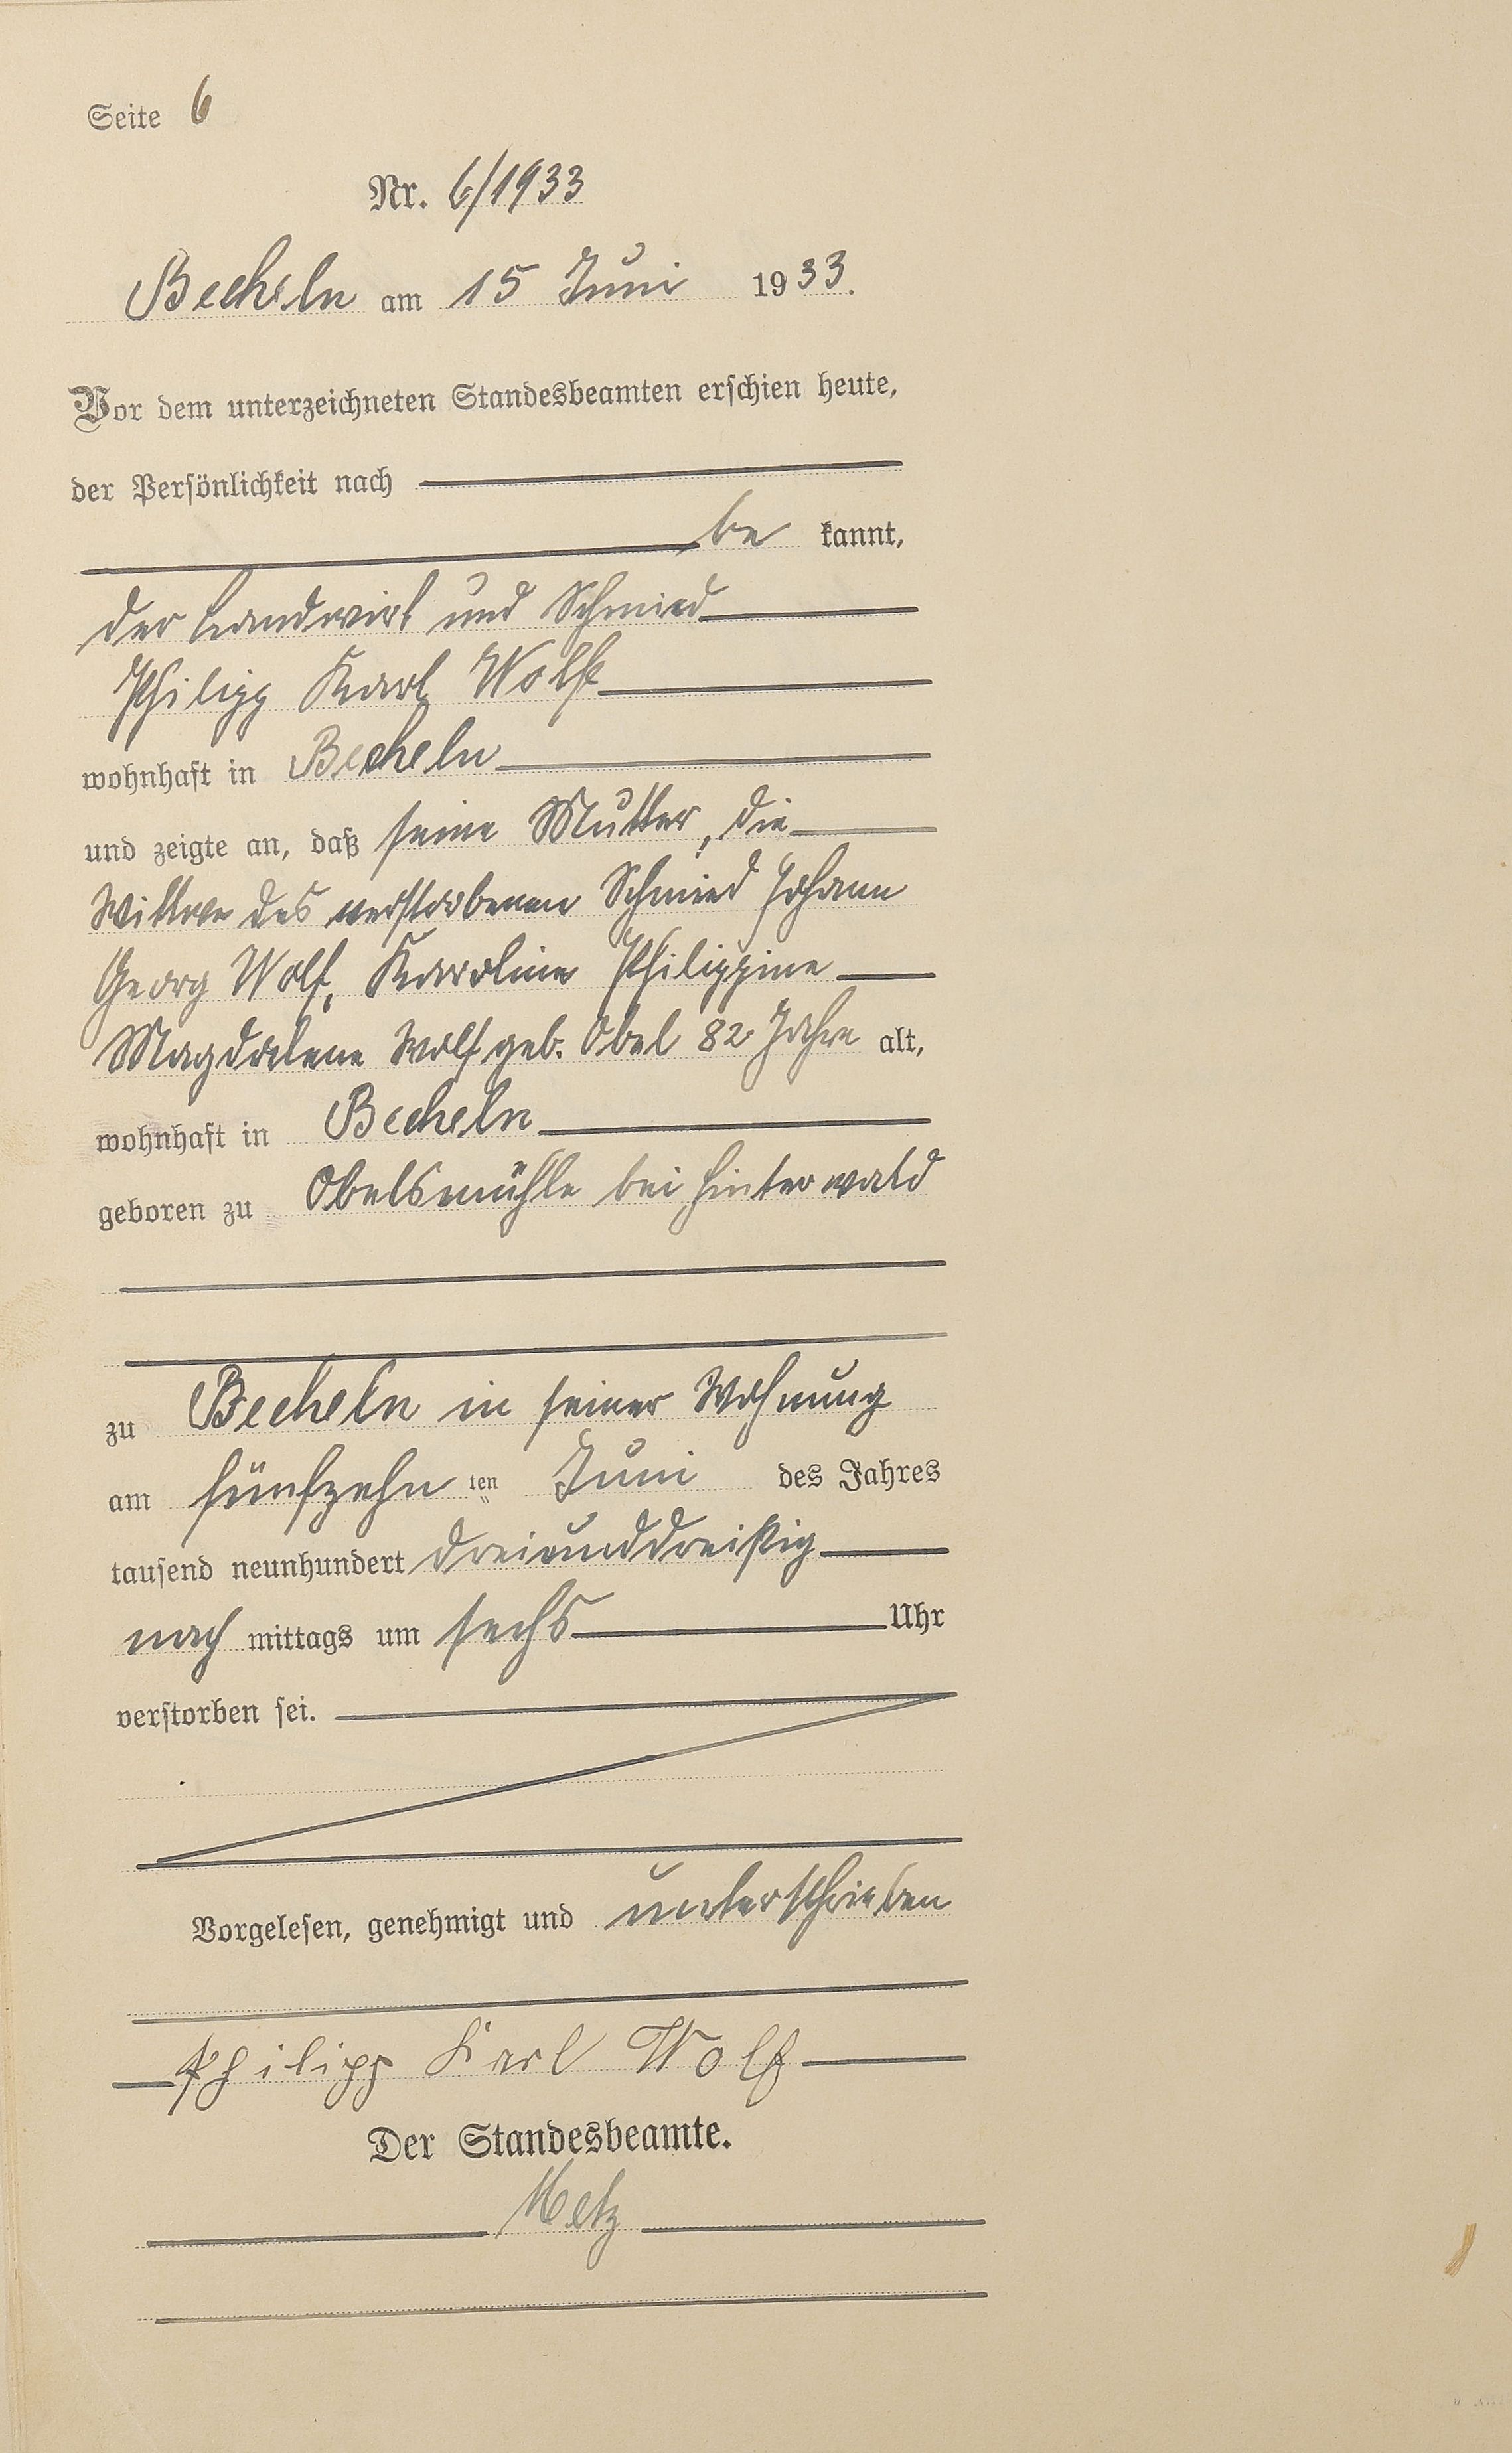 Seite 6
Nr. 6/1933
Becheln am 15 Juni 1933.
Vor dem unterzeichneten Standesbeamten erschien heute,
der Persönlichkeit nach
be kannt,
der Landwirt und Schmied
Philipp Karl Wolf
wohnhaft in Becheln
und zeigte an, daß seine Mutter, die
Witwe des verstorbenen Schmied Johann
Georg Wolf, Karoline Philippine
Magdalene Wolf geb. Obel 82 Jahre alt,
wohnhaft in Becheln
geboren zu Obelsmühle bei Hinterwald
zu Becheln in seiner Wohnung
am fünfzehn ten Juni des Jahres
tausend neunhundert dreiunddreißig
nach mittags um sechs Uhr
verstorben sei.
Vorgelesen, genehmigt und unterschrieben
Philipp Karl Wolf
Der Standesbeamte.
Metz